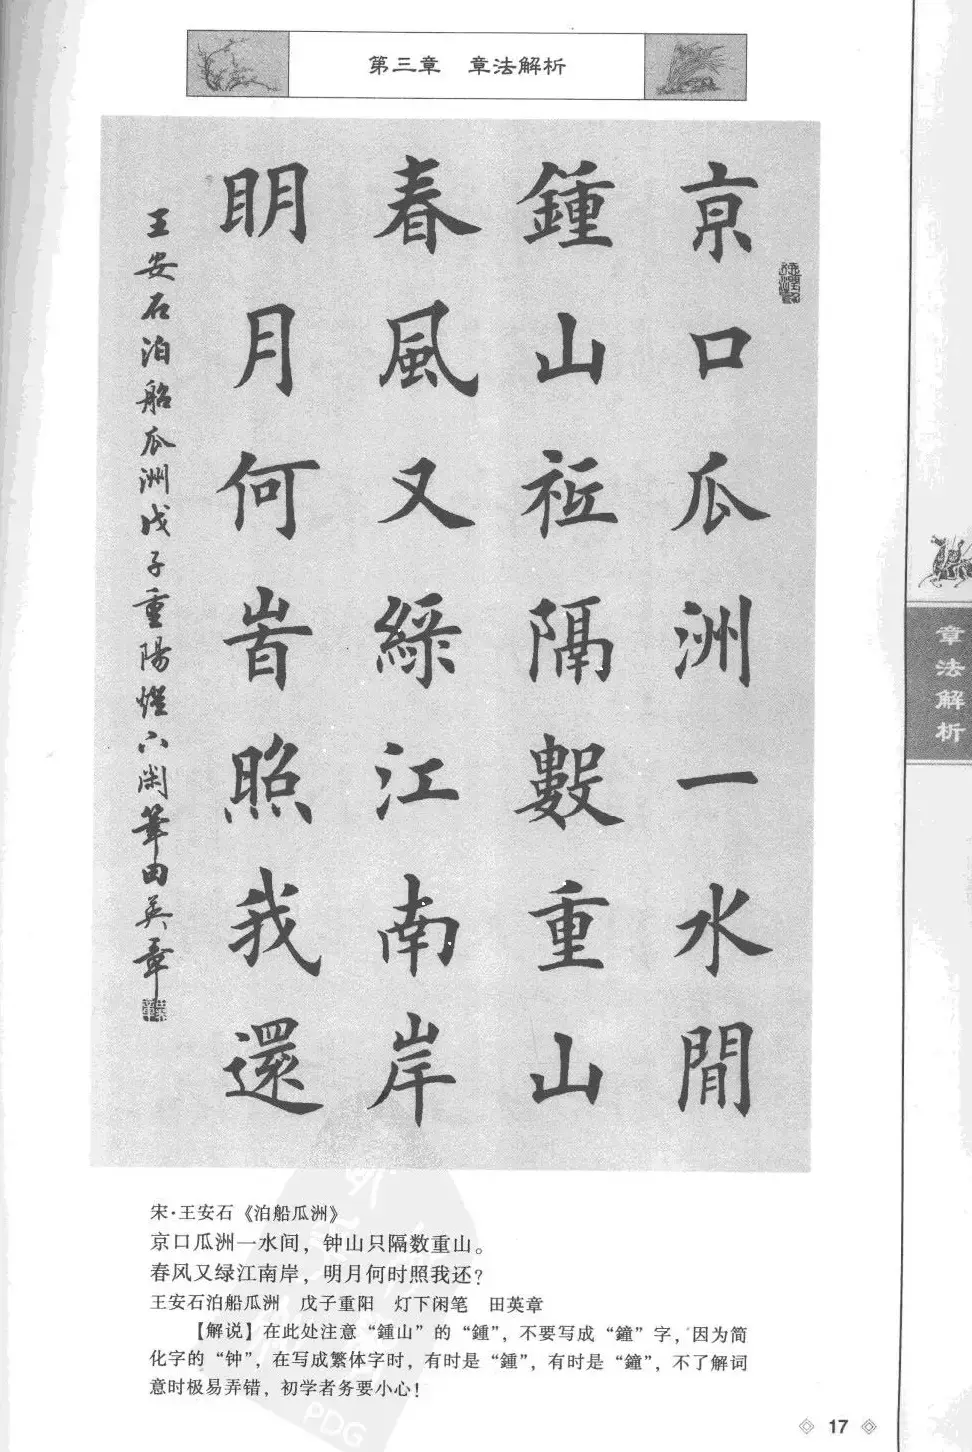 第三章 章法解析
京口瓜洲一水間
鍾山祗隔數重山
春風又綠江南岸
明月何旹照我還
王安石泊船瓜洲戊子重陽燈下閑筆田英章
章法解析
宋·王安石《泊船瓜洲》
京口瓜洲一水间，钟山只隔数重山。
春风又绿江南岸，明月何时照我还？
王安石泊船瓜洲 戊子重阳 灯下闲笔 田英章
【解说】在此处注意“鍾山”的“鍾”，不要写成“鐘”字，因为简
化字的“钟”，在写成繁体字时，有时是“鍾”，有时是“鐘”，不了解词
意时极易弄错，初学者务要小心！
PDG
17